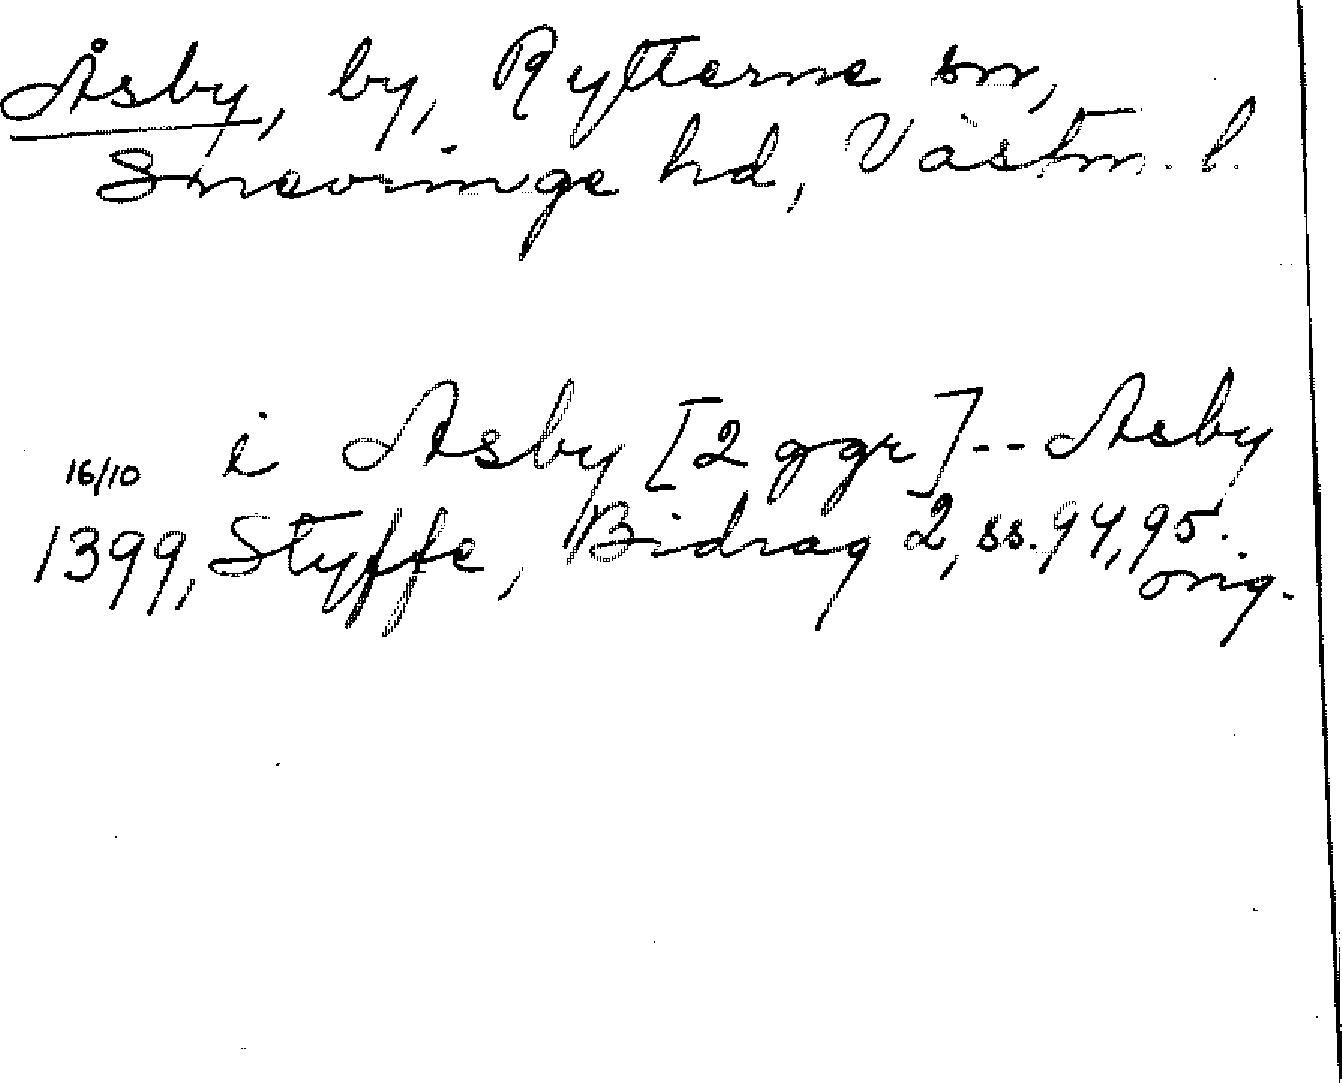 Åsby, by, Rytterne sn,
Snevringe hd, Västm. l.
i Asby [2 ggr] -- Asby
16/10
1399, Styffe, Bidrag 2, ss. 94, 95.
orig.